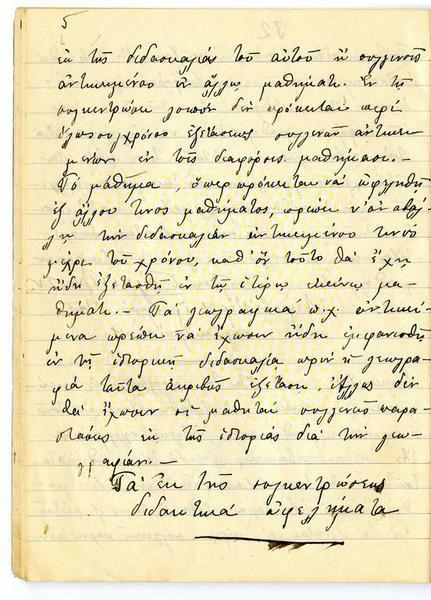 5
32
ἐκ τῆς διδασκαλίας τοῦ αὐτοῦ ἢ συγγενοῦς
ἀντικειμένου ἐν ἄλλῳ μαθήματι. Ἐν τῇ
συγκεντρώσει λοιπὸν δὲν πρόκειται περὶ
συγχρόνου ἐξετάσεως συγγενῶν ἀντικει
μένων ἐν τοῖς διαφόροις μαθήμασι.-
Τὸ μάθημα, ὅπερ πρόκειται νὰ ὠφεληθῇ
ἐξ ἄλλου τινὸς μαθήματος, πρέπει ν' ἀναβάλ
λῃ τὴν διδασκαλίαν ἀντικειμένου τινὸς
μέχρι τοῦ χρόνου, καθ' ὃν τοῦτο θὰ ἔχῃ
ἤδη ἐξετασθῆ ἐν τῷ ἑτέρῳ ἐκείνῳ μα-
θήματι. - Τὰ γεωγραφικὰ π.χ. ἀντικεί
μενα πρέπει νὰ ἔχωσιν ἤδη ἐμφανισθῆ
ἐν τῇ ἱστορικῇ διδασκαλίᾳ πρὶν ἡ γεωγρα
φία ταῦτα ἀκριβῶς ἐξετάσῃ. Ἄλλως δὲν
θὰ ἔχωσιν οἱ μαθηταὶ συγγενεῖς παρα
στάσεις ἐκ τῆς ἱστορίας διὰ τὴν γεω
γραφίαν.-
Τὰ ἐκ τῆς συγκεντρώσεως
διδακτικὰ ὠφελήματα